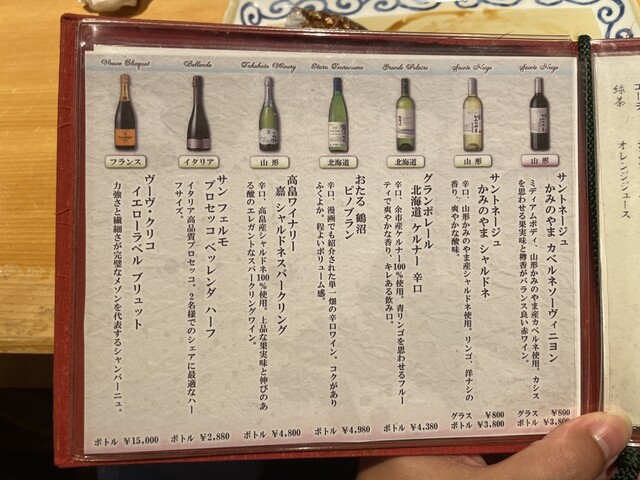 Sainte Neige
山形
サントネージュ
かみのやま カベルネソーヴィニヨン
ミディアムボディ、山形かみのやま産カベルネ使用。カシス
を思わせる果実味と樽香がバランス良い赤ワイン。
グラス ¥800
ボトル ¥3,800
Sainte Neige
山形
サントネージュ
かみのやま シャルドネ
辛口、山形かみのやま産シャルドネ使用。リンゴ、洋ナシの
香り、爽やかな酸味。
グラス ¥800
ボトル ¥3,800
Grande Polaire
北海道
グランポレール
北海道 ケルナー 辛口
辛口、余市産ケルナー100%使用。青リンゴを思わせるフルー
ティで爽やかな香り、キレある飲み口。
ボトル ¥4,380
Otaru Tsurunuma
北海道
おたる 鶴沼
ピノブラン
辛口、漫画でも紹介された単一畑の辛口ワイン。コクがあり
ふくよか、程よいボリューム感。
ボトル ¥4,980
Takahata Winery
山形
高畠ワイナリー
嘉 シャルドネスパークリング
辛口、高畠産シャルドネ100%使用。上品な果実味と伸びのあ
る酸のエレガントなスパークリングワイン。
ボトル ¥4,800
Bellenda
イタリア
サン フェルモ
プロセッコ ベッレンダ ハーフ
イタリア高品質プロセッコ。2名様でのシェアに最適なハー
フサイズ。
ボトル ¥2,880
Veuve Clicquot
フランス
ヴーヴ・クリコ
イエローラベル ブリュット
力強さと繊細さが完璧なメゾンを代表するシャンパーニュ。
ボトル ¥15,000
オレンジジュース
緑茶